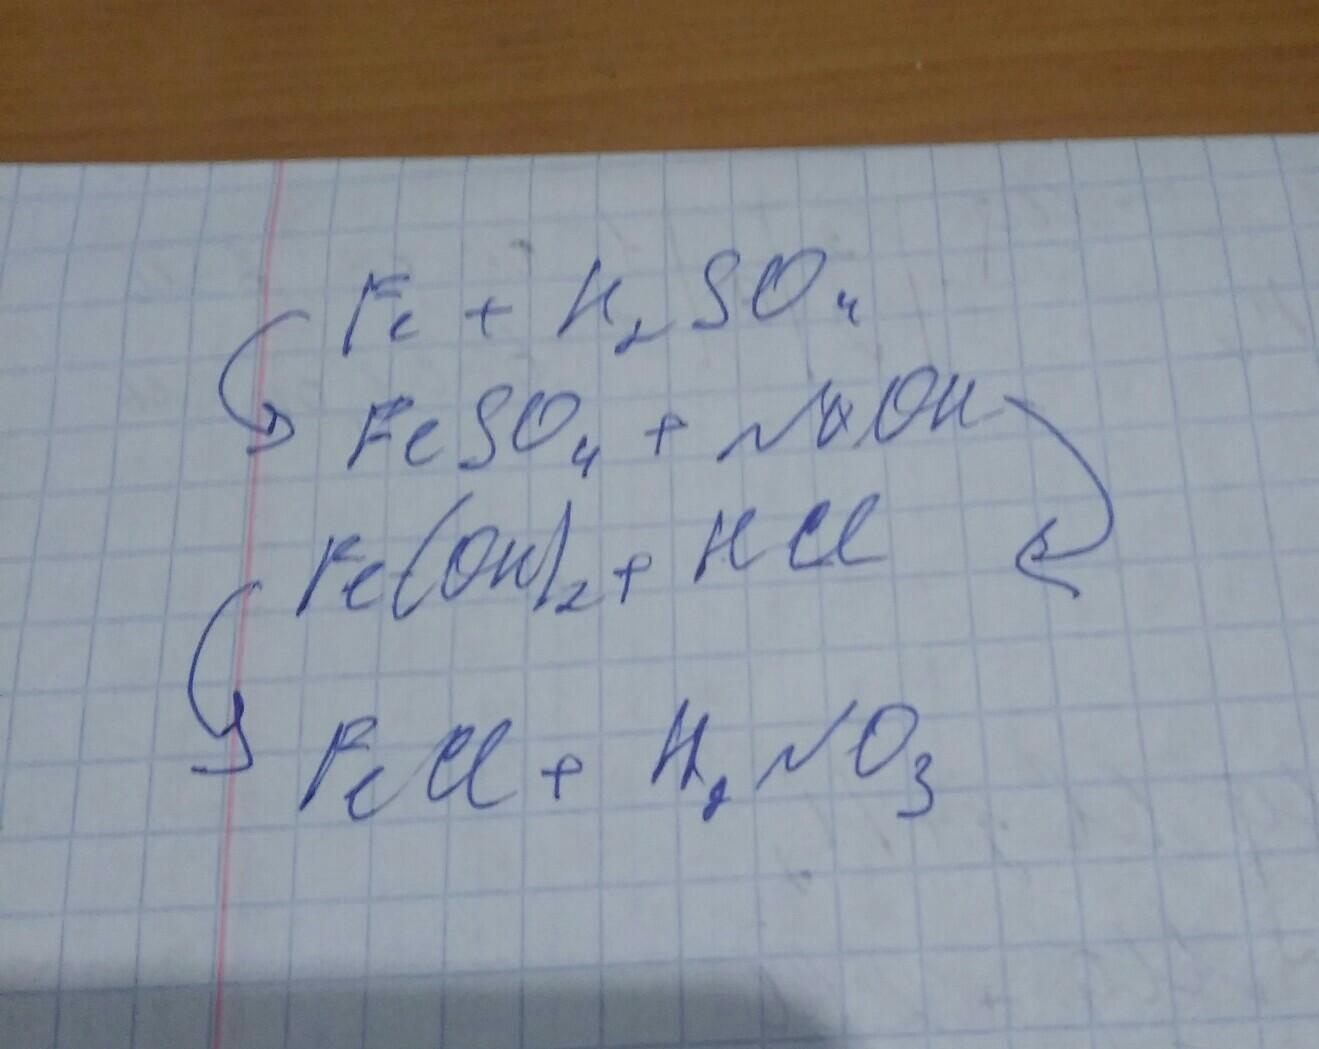 Fe + H₂SO₄
FeSO₄ + NaOH
Fe(OH)₂ + HCl
FeCl + H₂NO₃